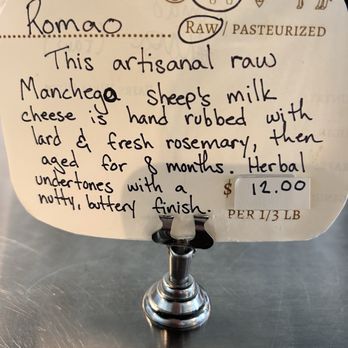 Romao RAW / PASTEURIZED
This artisanal raw
Manchega sheep's milk
cheese is hand rubbed with
lard & fresh rosemary, then
aged for 8 months. Herbal
undertones with a $ 12.00
nutty, buttery finish. PER 1/3 LB